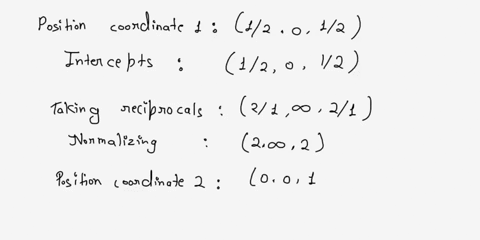 Position coordinate 1 : (1/2 . 0 , 1/2)
Intercepts : (1/2, 0, 1/2)
Taking reciprocals : (2/1, ∞ , 2/1)
Normalizing : (2.∞, 2)
Position coordinate 2 : (0. 0, 1